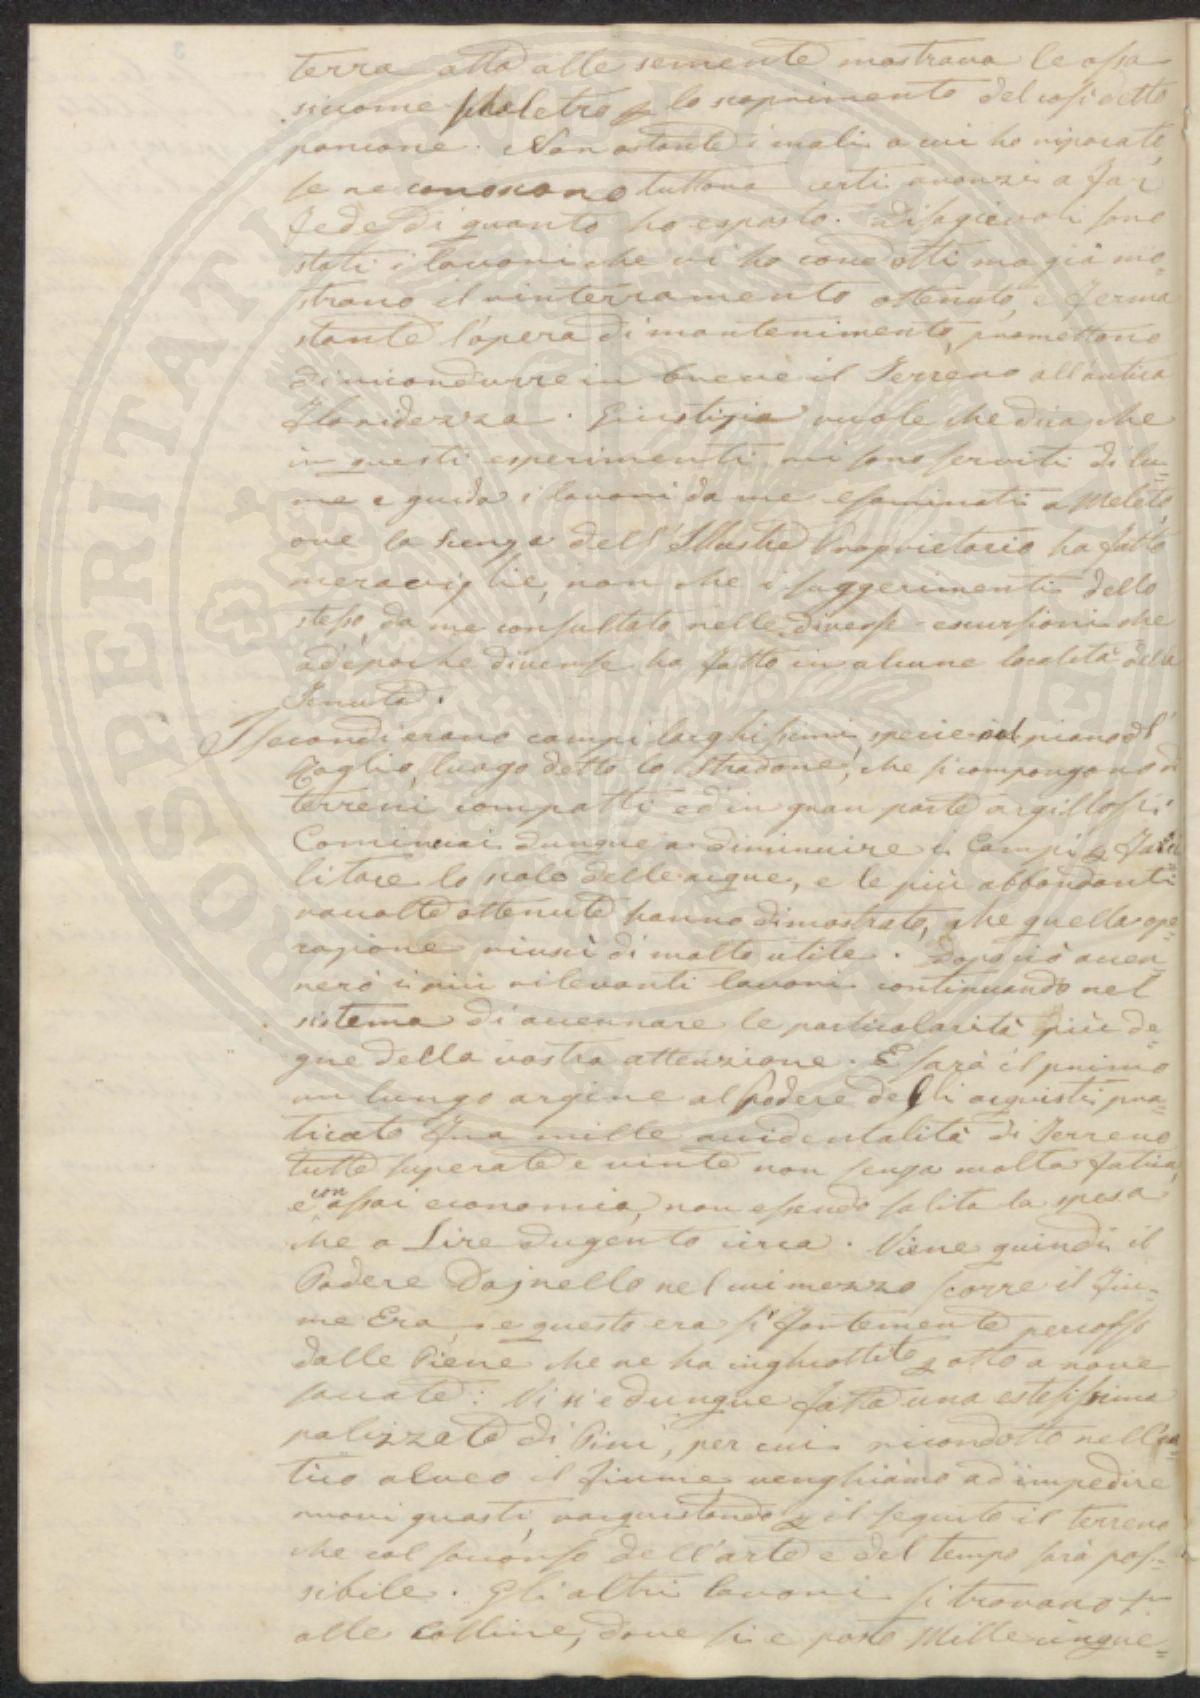 terra atta alle semente mostrava le ossa
siccome scheletro p lo scoprimento del così detto
pancone. Non ostante i mali a cui ho riparato,
se ne conoscono tuttavia certi avanzi a far
fede di quanto ho esposto. Disagievoli sono
stati i lavori che vi ho condotti ma già mo=
strano il rinterramento ottenuto, e ferma
stante l'opera di mantenimento, promettono
di ricondurre in breve il Terreno all'antica
floridezza. Giustizia vuole che dica che
in questi esperimenti mi sono serviti di lu=
me e guida i lavori da me esaminati a Meleto,
ove la scenza dell'Illustre Proprietario ha fatto
meraviglie, non che i suggerimenti dello
stesso, da me consultato nelle diverse escursioni che
ad epoche diverse ha fatto in alcune località della
Tenuta.
I secondi erano campi larghissimi, specie nel piano del
Taglio, luogo detto lo Stradone, che si compongono di
terreni compatti ed in gran parte argillosi.
Cominciai dunque a diminuire i Campi p faci=
litare lo scolo delle acque, e le più abbondanti
raccolte ottenute hanno dimostrato, che quella ope=
razione riuscì di molto utile. Dopo ciò accen=
nerò i più rilevanti lavori continuando nel
sistema di accennare le particolarità più de=
gne della vostra attenzione. E sarà il primo
un lungo argine al Podere degli acquisti pra=
ticato fra mille accidentalità di Terreno
tutte superate e vinte non senza molta fatica,
e con assai economia, non essendo salita la spesa
che a Lire dugento circa. Viene quindi il
Podere Dajnello nel cui mezzo scorre il fiu=
me Era, e questo era sì fortemente percosso
dalle Piene che ne ha inghiottite p otto a nove
saccate. Vi si è dunque fatta una estesissima
palizzata di Pini, per cui ricondotto nell'an=
tico alveo il fiume, venghiamo ad impedire
nuovi guasti, racquistando p il seguito il terreno
che col soccorso dell'arte e del tempo sarà pos=
sibile. Gli altri lavori si trovano
alle Colline, dove si è posto Mille cinque=